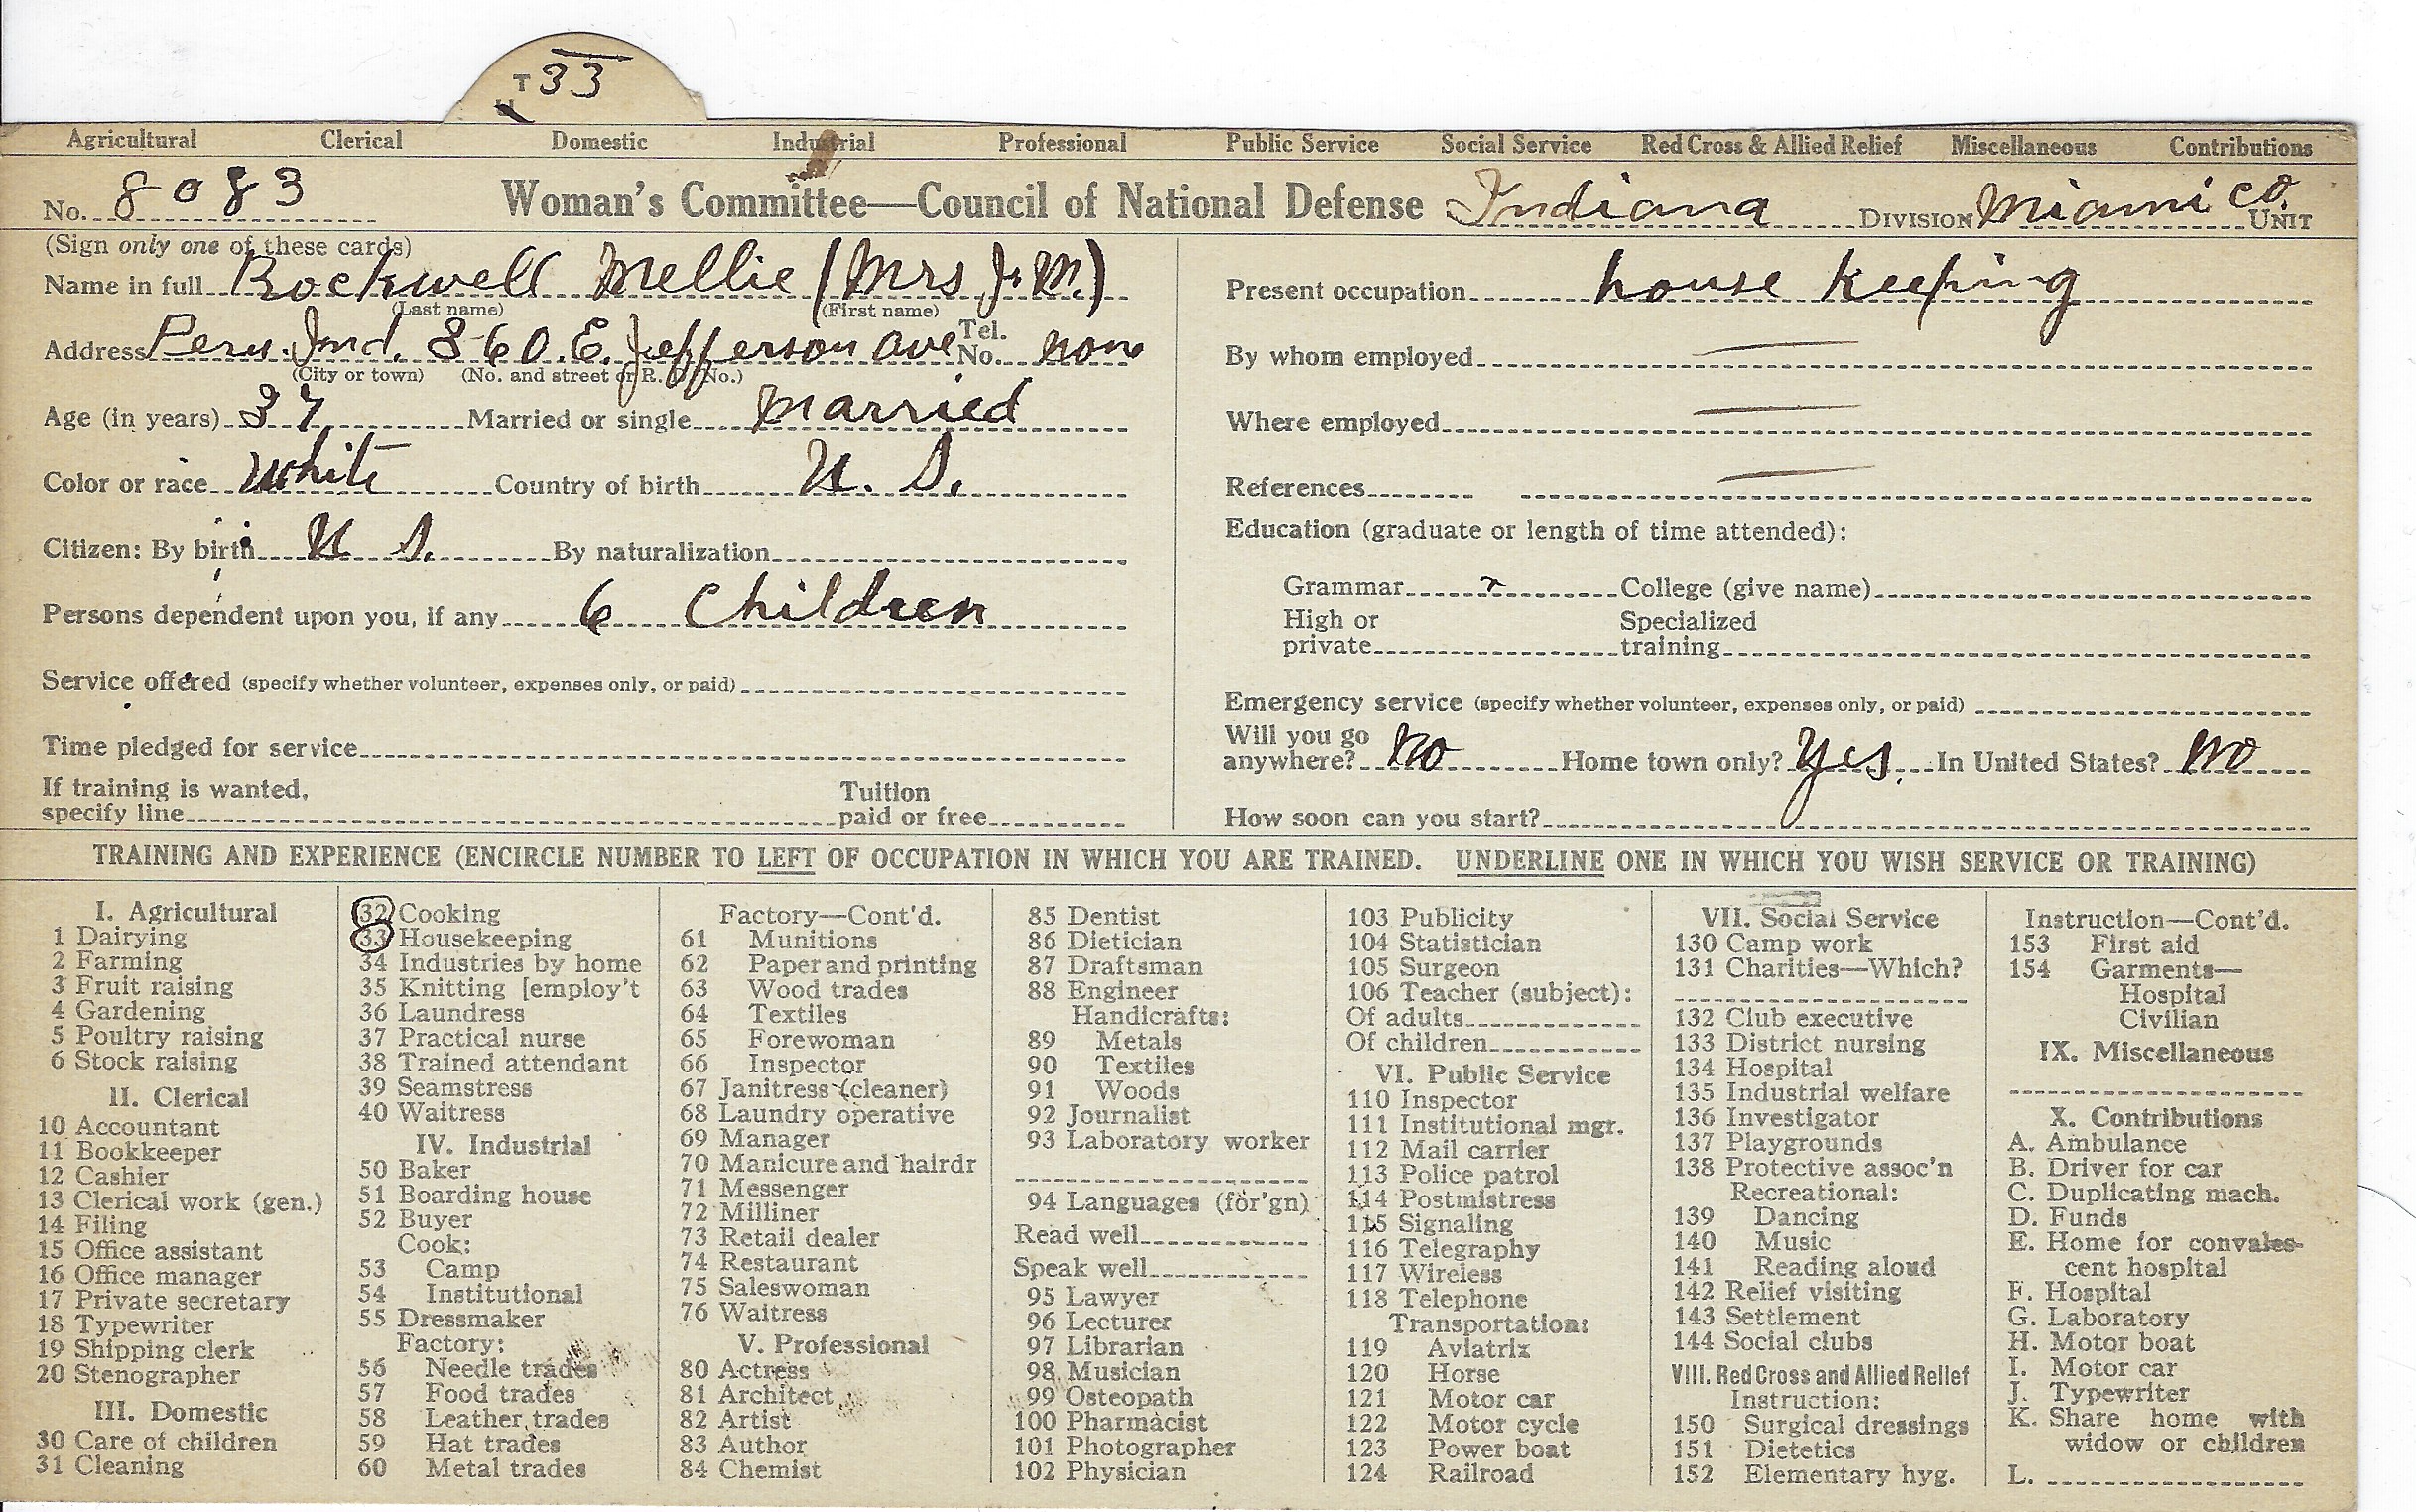 T 33
Agricultural Clerical Domestic Industrial Professional Public Service Social Service Red Cross & Allied Relief Miscellaneous Contributions
No. 8083 Woman's Committee—Council of National Defense Indiana DIVISION Miami Co. UNIT
(Sign only one of these cards)
Name in full Rockwell Mellie (Mrs J. M.)
(Last name) (First name)
Address Peru. Ind. 860. E. Jefferson ave Tel. No. none
(City or town) (No. and street or R. D. No.)
Age (in years) 37 Married or single married
Color or race White Country of birth U. S.
Citizen: By birth U S. By naturalization
Persons dependent upon you, if any 6 Children
Service offered (specify whether volunteer, expenses only, or paid)
Time pledged for service
If training is wanted, Tuition
specify line paid or free
Present occupation house keeping
By whom employed
Where employed
References
Education (graduate or length of time attended):
Grammar x College (give name)
High or Specialized
private training
Emergency service (specify whether volunteer, expenses only, or paid)
Will you go
anywhere? no Home town only? Yes. In United States? no
How soon can you start?
TRAINING AND EXPERIENCE (ENCIRCLE NUMBER TO LEFT OF OCCUPATION IN WHICH YOU ARE TRAINED. UNDERLINE ONE IN WHICH YOU WISH SERVICE OR TRAINING)
I. Agricultural
1 Dairying
2 Farming
3 Fruit raising
4 Gardening
5 Poultry raising
6 Stock raising
II. Clerical
10 Accountant
11 Bookkeeper
12 Cashier
13 Clerical work (gen.)
14 Filing
15 Office assistant
16 Office manager
17 Private secretary
18 Typewriter
19 Shipping clerk
20 Stenographer
III. Domestic
30 Care of children
31 Cleaning
32 Cooking
33 Housekeeping
34 Industries by home
35 Knitting [employ't
36 Laundress
37 Practical nurse
38 Trained attendant
39 Seamstress
40 Waitress
IV. Industrial
50 Baker
51 Boarding house
52 Buyer
Cook:
53 Camp
54 Institutional
55 Dressmaker
Factory:
56 Needle trades
57 Food trades
58 Leather trades
59 Hat trades
60 Metal trades
Factory—Cont'd.
61 Munitions
62 Paper and printing
63 Wood trades
64 Textiles
65 Forewoman
66 Inspector
67 Janitress (cleaner)
68 Laundry operative
69 Manager
70 Manicure and hairdr
71 Messenger
72 Milliner
73 Retail dealer
74 Restaurant
75 Saleswoman
76 Waitress
V. Professional
80 Actress
81 Architect
82 Artist
83 Author
84 Chemist
85 Dentist
86 Dietician
87 Draftsman
88 Engineer
Handicrafts:
89 Metals
90 Textiles
91 Woods
92 Journalist
93 Laboratory worker
94 Languages (for'gn)
Read well
Speak well
95 Lawyer
96 Lecturer
97 Librarian
98 Musician
99 Osteopath
100 Pharmacist
101 Photographer
102 Physician
103 Publicity
104 Statistician
105 Surgeon
106 Teacher (subject):
Of adults
Of children
VI. Public Service
110 Inspector
111 Institutional mgr.
112 Mail carrier
113 Police patrol
114 Postmistress
115 Signaling
116 Telegraphy
117 Wireless
118 Telephone
Transportation:
119 Aviatrix
120 Horse
121 Motor car
122 Motor cycle
123 Power boat
124 Railroad
VII. Social Service
130 Camp work
131 Charities—Which?
132 Club executive
133 District nursing
134 Hospital
135 Industrial welfare
136 Investigator
137 Playgrounds
138 Protective assoc'n
Recreational:
139 Dancing
140 Music
141 Reading aloud
142 Relief visiting
143 Settlement
144 Social clubs
VIII. Red Cross and Allied Relief
Instruction:
150 Surgical dressings
151 Dietetics
152 Elementary hyg.
Instruction—Cont'd.
153 First aid
154 Garments—
Hospital
Civilian
IX. Miscellaneous
X. Contributions
A. Ambulance
B. Driver for car
C. Duplicating mach.
D. Funds
E. Home for convales-
cent hospital
F. Hospital
G. Laboratory
H. Motor boat
I. Motor car
J. Typewriter
K. Share home with
widow or children
L.